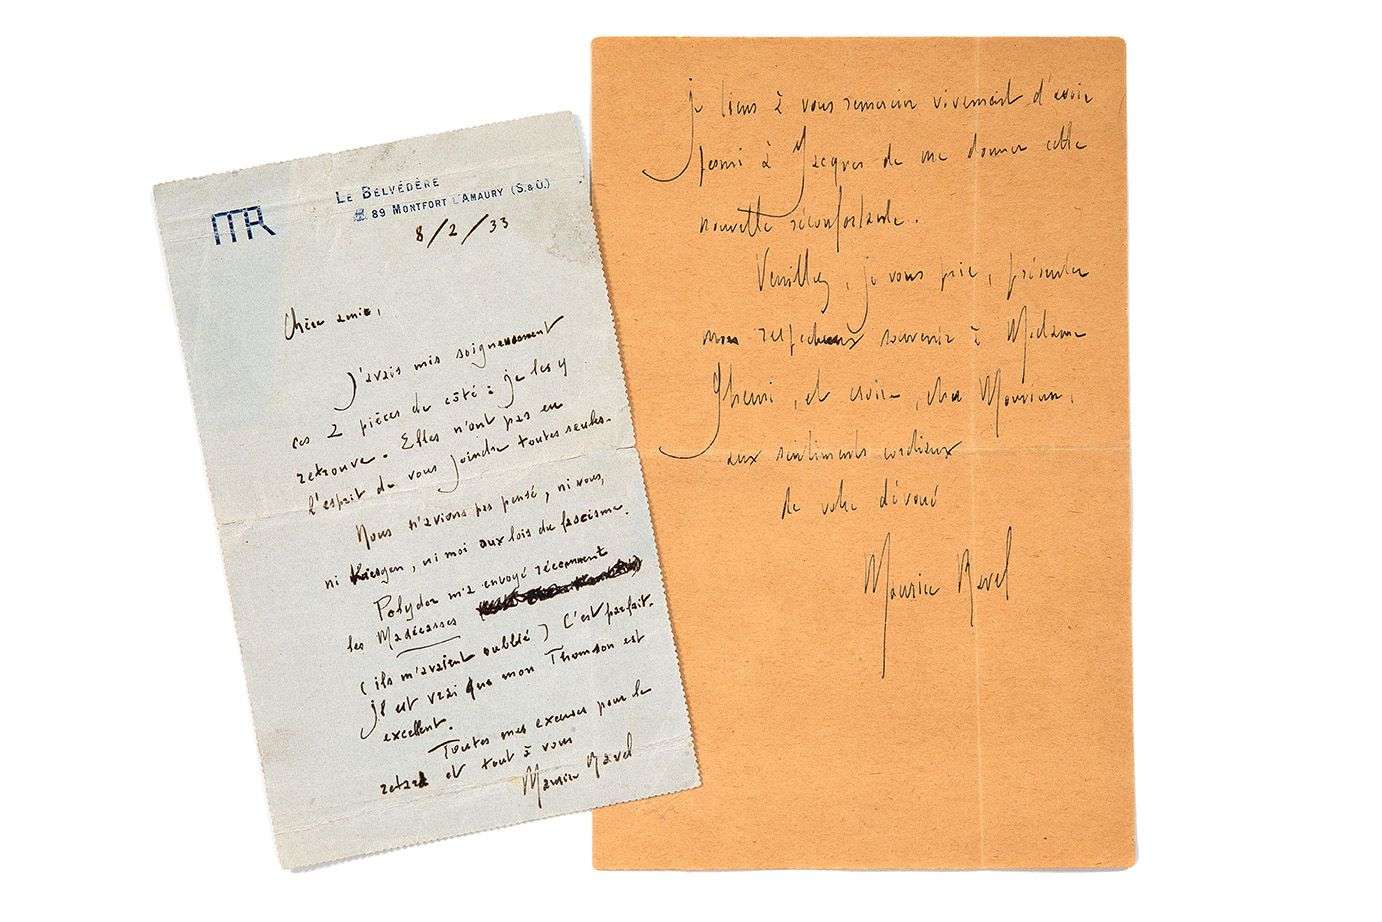 MR
LE BELVÉDÈRE
89 MONTFORT L'AMAURY (S.&O.)
8/2/33
Chère amie,
J'avais mis soigneusement
ces 2 pièces de côté : je les y
retrouve. Elles n'ont pas eu
l'esprit de vous joindre toutes seules.
Nous n'avions pas pensé, ni vous,
ni Kiesgen, ni moi aux lois du fascisme.
Polydor m'a envoyé récemment
les Madécasses
(ils m'avaient oublié) C'est parfait.
Il est vrai que mon Thomson est
excellent.
Toutes mes excuses pour le
retard et tout à vous
Maurice Ravel
je tiens à vous remercier vivement d'avoir
permi à Jacques de me donner cette
nouvelle réconfortante.
Veuillez, je vous prie, présenter
mes respectueux souvenirs à Madame
et croire, cher
aux sentiments cordiaux
de votre dévoué
Maurice Ravel